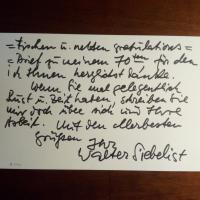 = Frischen u. netten Gratulations =
= Brief zu meinem 70ten für den
ich Ihnen herzlichst danke.
Wenn Sie mal gelegentlich
Lust u. Zeit haben, schreiben Sie
mir doch über sich und Ihre
Arbeit. Mit den allerbesten
Grüßen Ihr
Walter Siebelist